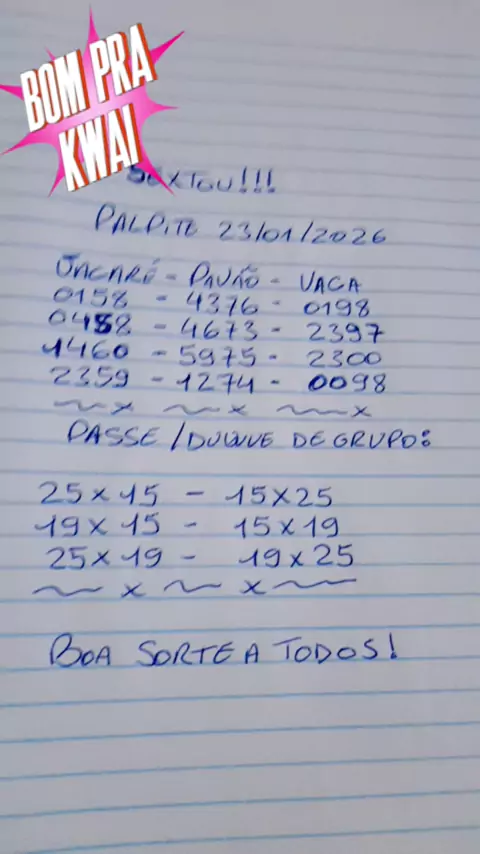 BOM PRA
KWAI
SEXTOU!!!
PALPITE 23/01/2026
JACARÉ - PAVÃO - VACA
0158 - 4376 - 0198
0458 - 4673 - 2397
1460 - 5975 - 2300
2359 - 1274 - 0098
~ x ~ x ~ x
PASSE/DUQUE DE GRUPO:
25x15 - 15x25
19x15 - 15x19
25x19 - 19x25
~ x ~ x ~
BOA SORTE A TODOS!